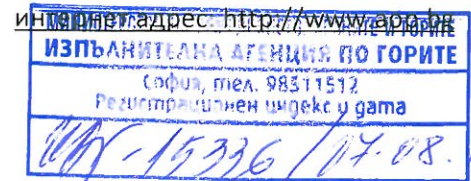 интернет адрес: http://www.app.bg
И ГОРИТЕ
ИЗПЪЛНИТЕЛНА АГЕНЦИЯ ПО ГОРИТЕ
София, тел. 98511512
Регистрационен индекс и дата
-15336 / 17.08.